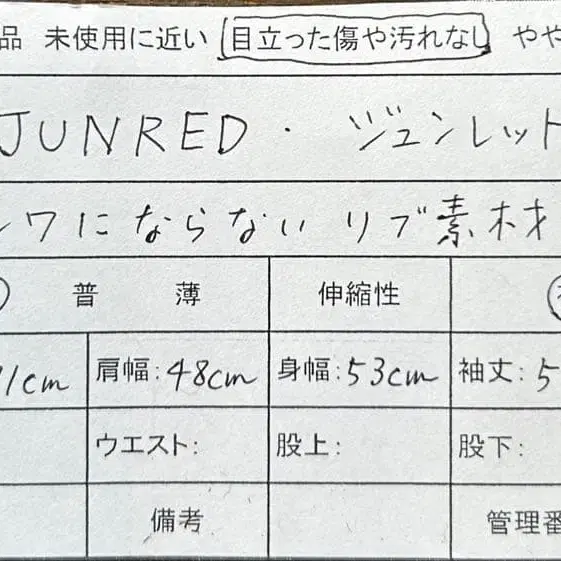 品 未使用に近い 目立った傷や汚れなし やや
JUNRED・ ジュンレット
シワにならない リブ素材
普 薄 伸縮性
1cm 肩幅:48cm 身幅:53cm 袖丈:5
ウエスト: 股上: 股下:
備考 管理番